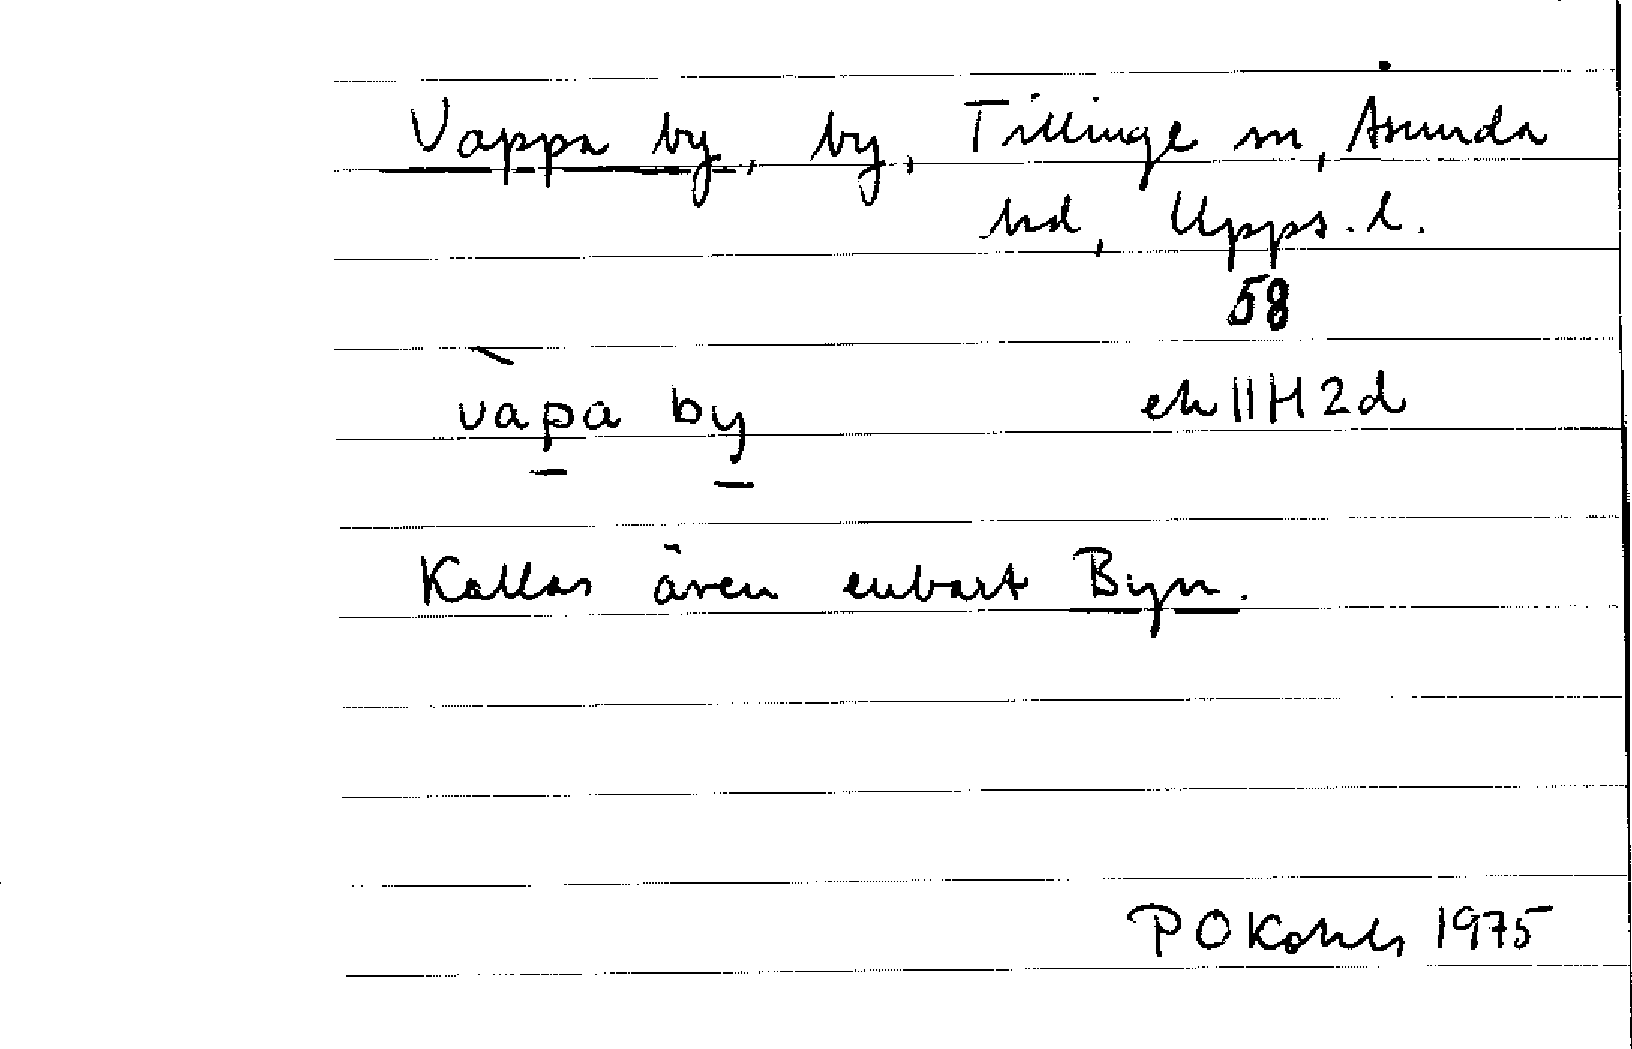 Vappa by, by, Tillinge sn, Åsunda
hd, Upps. l.
58
vàpa by
ek 11H2d
Kallas även enbart Byn.
P O 1975